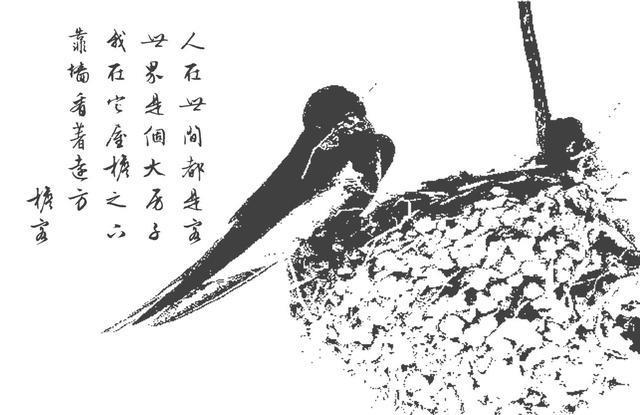 人在世間都是客
世界是個大房子
我在它屋檐之下
靠墻看著遠方
檐客